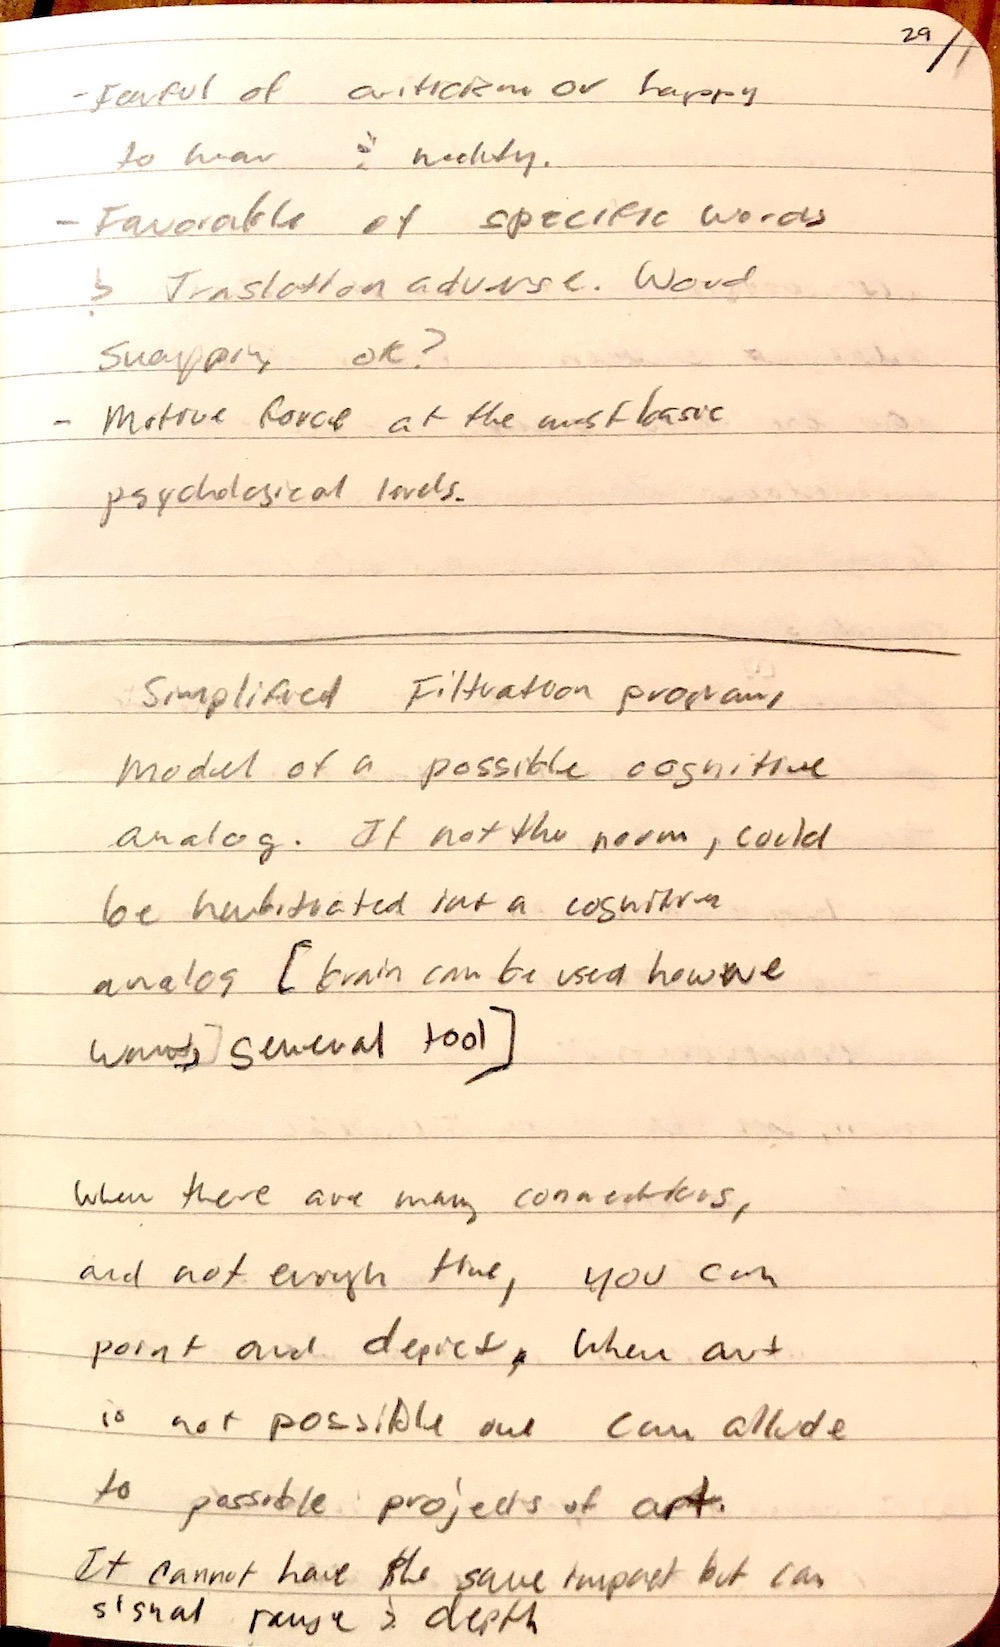 29
- Fearful of criticism or happy
to hear &
- Favorable of specific words
& Translation adverse. Word
Swapping ok?
- Motive force at the most basic
psychological levels.
Simplified Filtration program,
Model of a possible cognitive
analog. If not the norm, could
be into a cognitive
analog [brain can be used however we
wants] general tool]
When there are many connections,
and not enough time, you can
point and depict, when art
is not possible one can allude
to possible projects of art.
It cannot have the same impact but can
signal range & depth